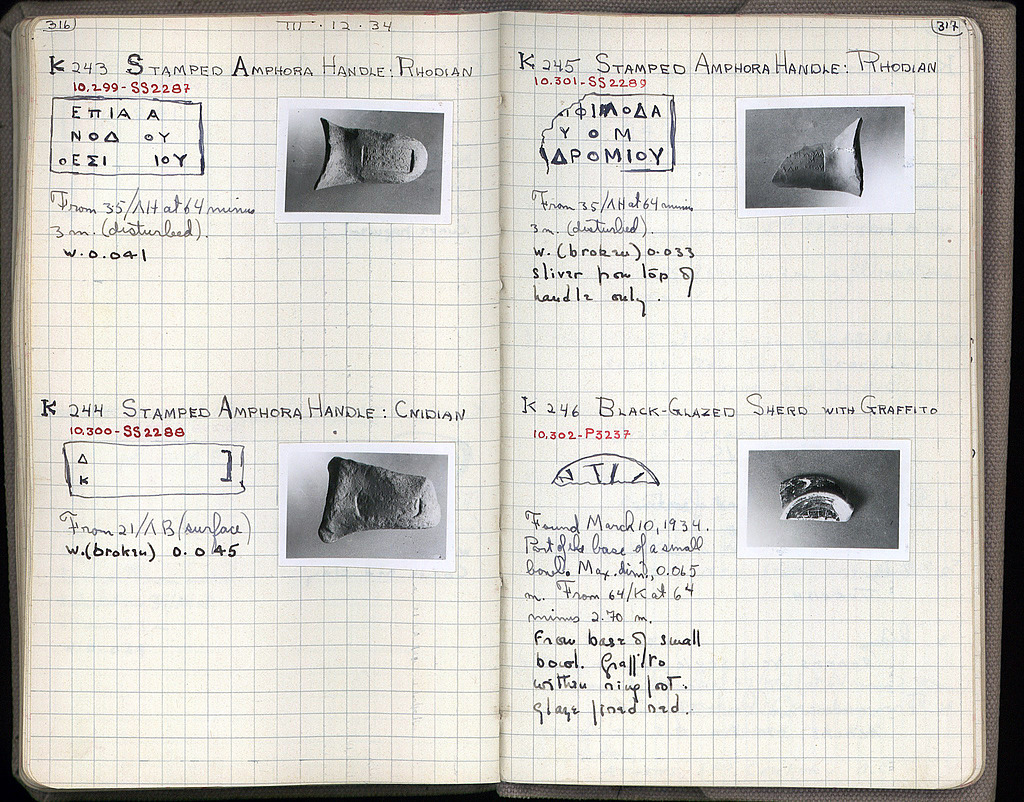 316
III · 12 · 34
K 243 STAMPED AMPHORA HANDLE: RHODIAN
10.299-SS2287
ΕΠΙΑ Α
ΝΟΔ ΟΥ
ΟΕΣΙ ΙΟΥ
From 35/ΛΗ at 64 minus
3 m. (disturbed).
W. 0.041
K 244 STAMPED AMPHORA HANDLE: CNIDIAN
10.300-SS2288
Δ
Κ
From 21/ΛΒ (surface)
W. (broken) 0.045
317
K 245 STAMPED AMPHORA HANDLE: RHODIAN
10.301-SS2289
ΟΔΑ
Υ Ο Μ
ΔΡΟΜΙΟΥ
From 35/ΛΗ at 64 minus
3 m. (disturbed).
W. (broken) 0.033
sliver from top of
handle only.
K 246 BLACK-GLAZED SHERD WITH GRAFFITO
10.302-P3237
Found March 10, 1934.
Part of the base of a small
bowl. Max. dim., 0.065
m. From 64/Κ at 64
minus 2.70 m.
From base of small
bowl. Graffito
within ring foot.
Glaze fired red.